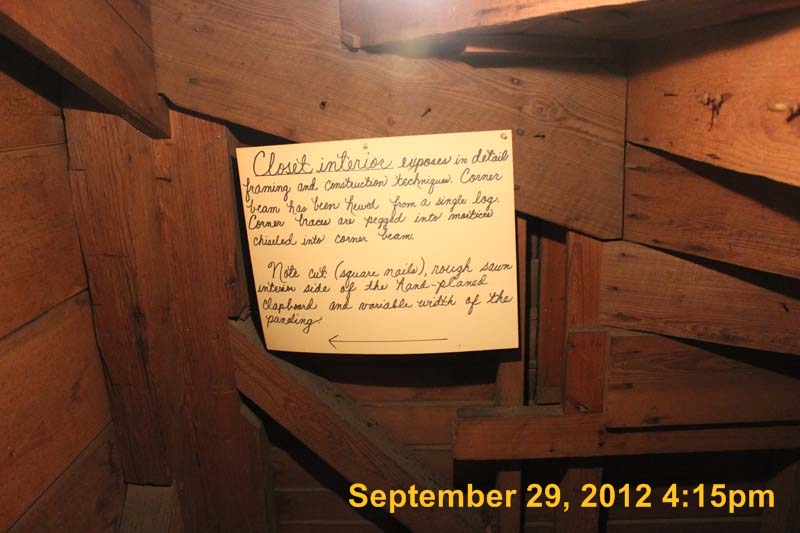 Closet interior exposes in detail
framing and construction techniques. Corner
beam has been hewed from a single log.
Corner braces are pegged into mortices
chiseled into corner beam.
Note cut (square nails), rough sawn
interior side of the hand-planed
clapboard and variable width of the
paneling.
September 29, 2012 4:15pm